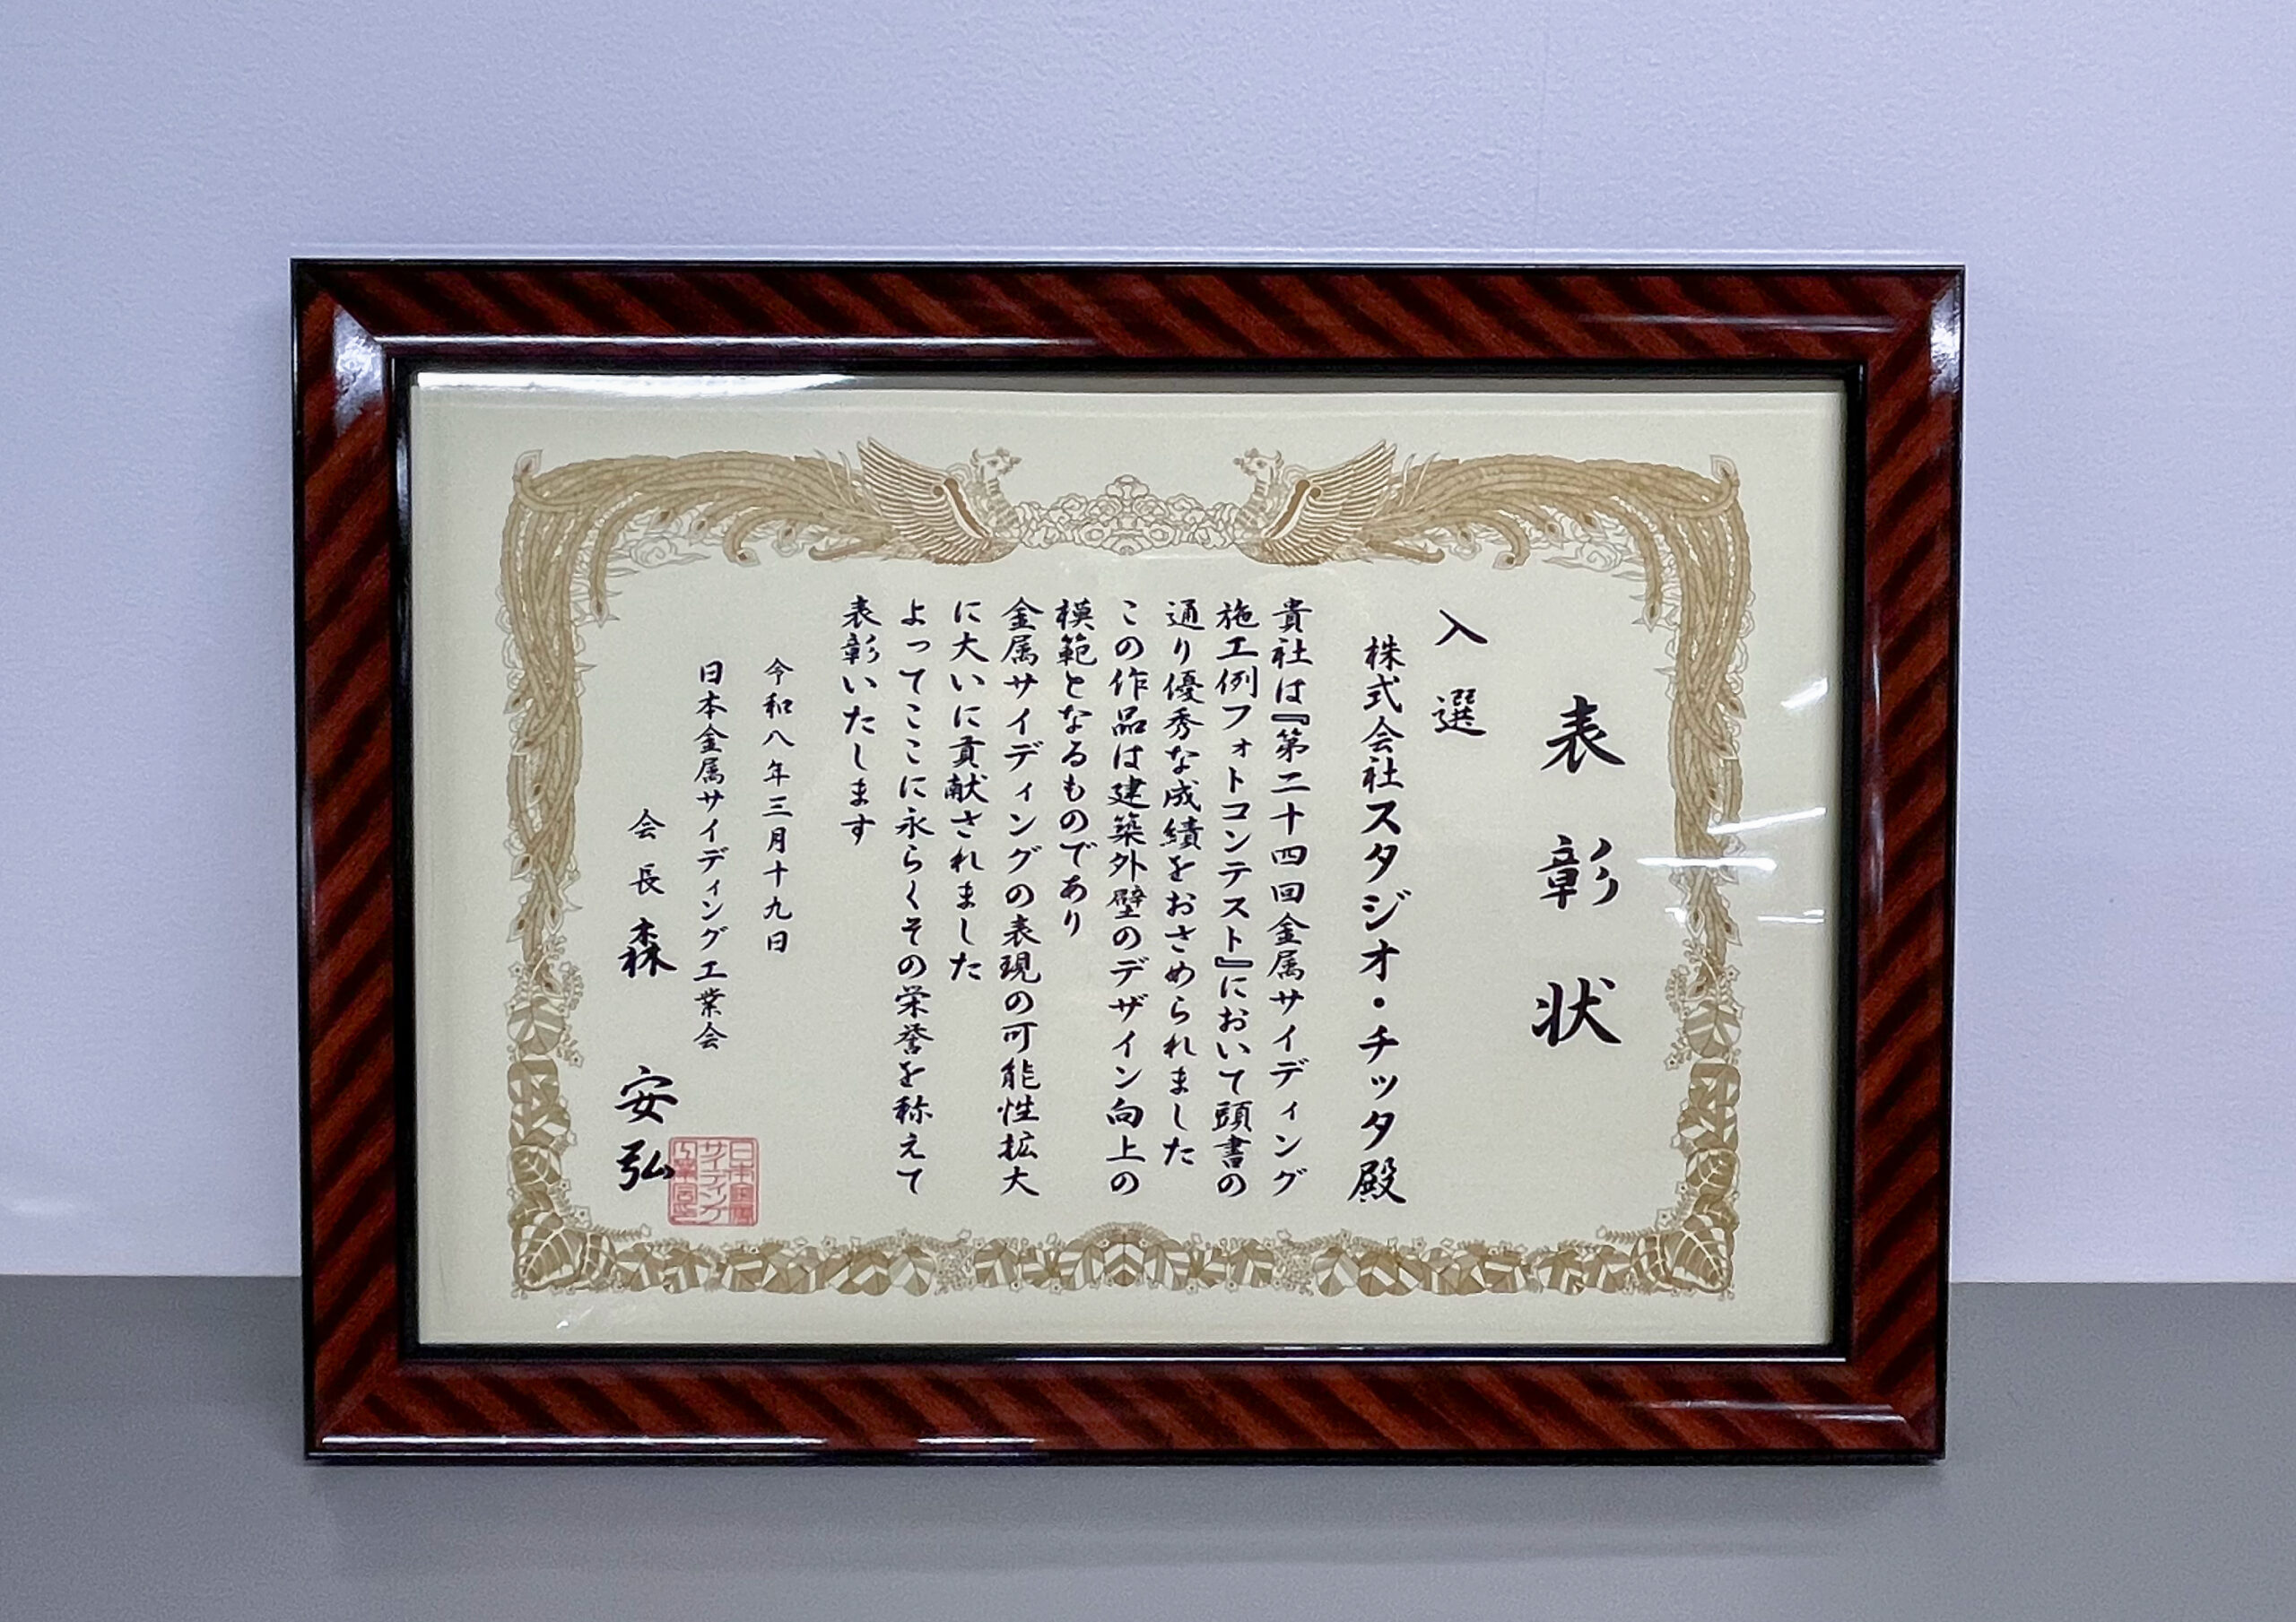 表彰状
入選
株式会社スタジオ・チッタ殿
貴社は『第二十四回金属サイディング
施工例フォトコンテスト』において頭書の
通り優秀な成績をおさめられました
この作品は建築外壁のデザイン向上の
模範となるものであり
金属サイディングの表現の可能性拡大
に大いに貢献されました
よってここに永らくその栄誉を称えて
表彰いたします
令和八年三月十九日
日本金属サイディング工業会
会長 森 安弘
日本金属
サイディング
工業会印